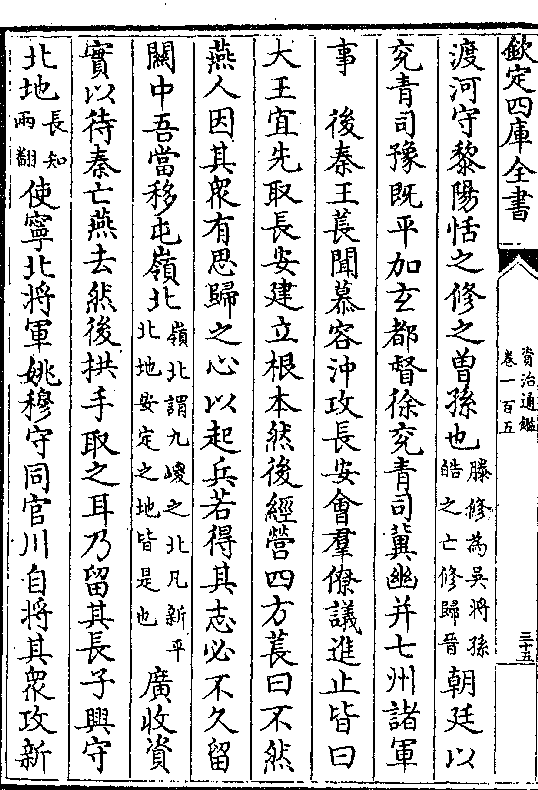 欽定四庫全書
資治通鑑
卷一百五
三十五
渡河守黎陽恬之修之曽孫也滕修為吳將孫皓之亡修歸晉朝廷以
兖青司豫既平加玄都督徐兖青司冀幽并七州諸軍
事　後秦王萇聞慕容沖攻長安會羣僚議進止皆曰
大王宜先取長安建立根本然後經營四方萇曰不然
燕人因其衆有思歸之心以起兵若得其志必不久留
關中吾當移屯嶺北嶺北謂九嵕之北凡新平北地安定之地皆是也廣收資
實以待秦亡燕去然後拱手取之耳乃留其長子興守
北地長知兩翻使寧北将軍姚穆守同官川自将其衆攻新